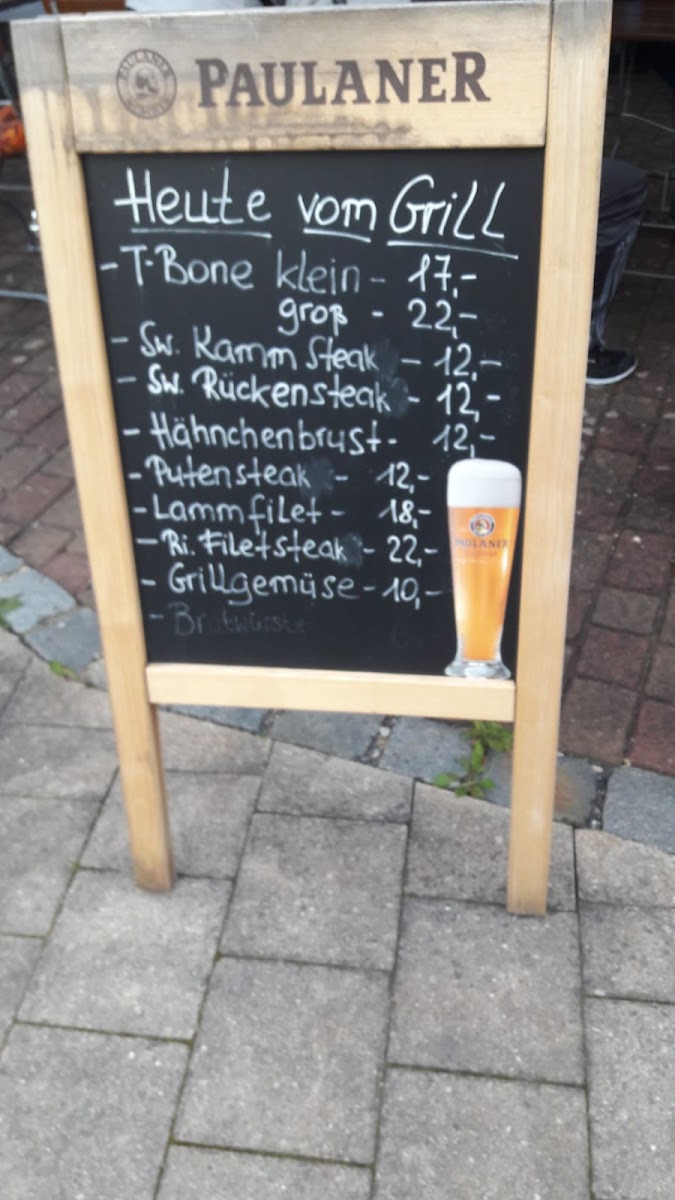 PAULANER
Heute vom Grill
- T-Bone klein - 17,-
groß - 22,-
- Sw. Kamm Steak - 12,-
- Sw. Rückensteak - 12,-
- Hähnchenbrust - 12,-
- Putensteak - 12,-
- Lammfilet - 18,-
- Ri. Filetsteak - 22,-
- Grillgemüse - 10,-
- Bratwürste
PAULANER